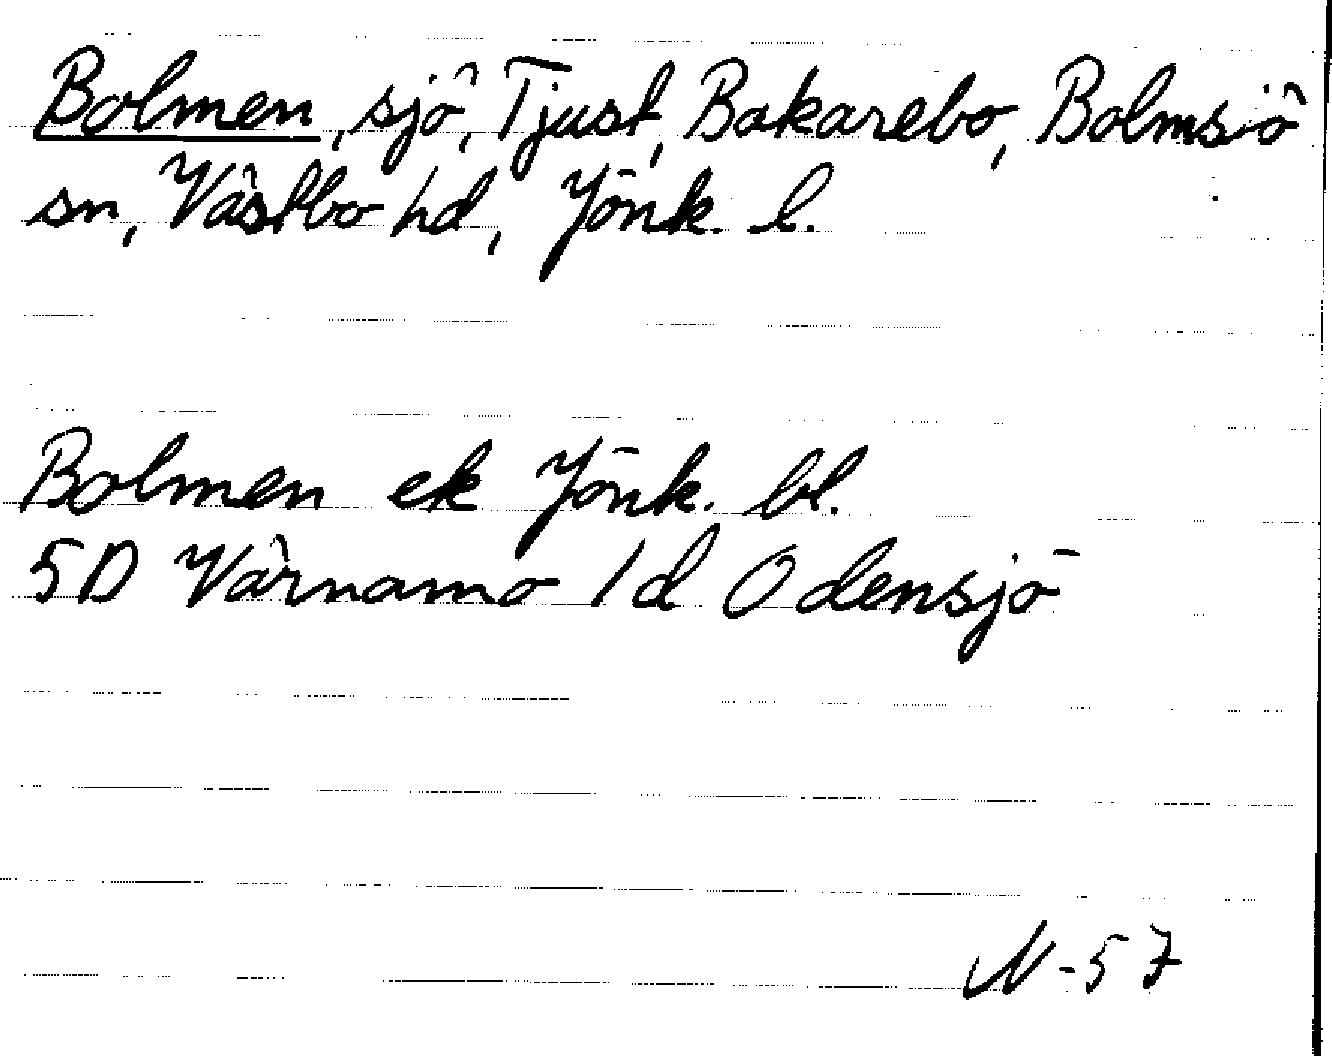 Bolmen, sjö, Tjust, Bakarebo, Bolmsjö
sn, Västbo hd, Jönk. l.
Bolmen ek Jönk. bl.
5D Värnamo 1d Odensjö
N-57